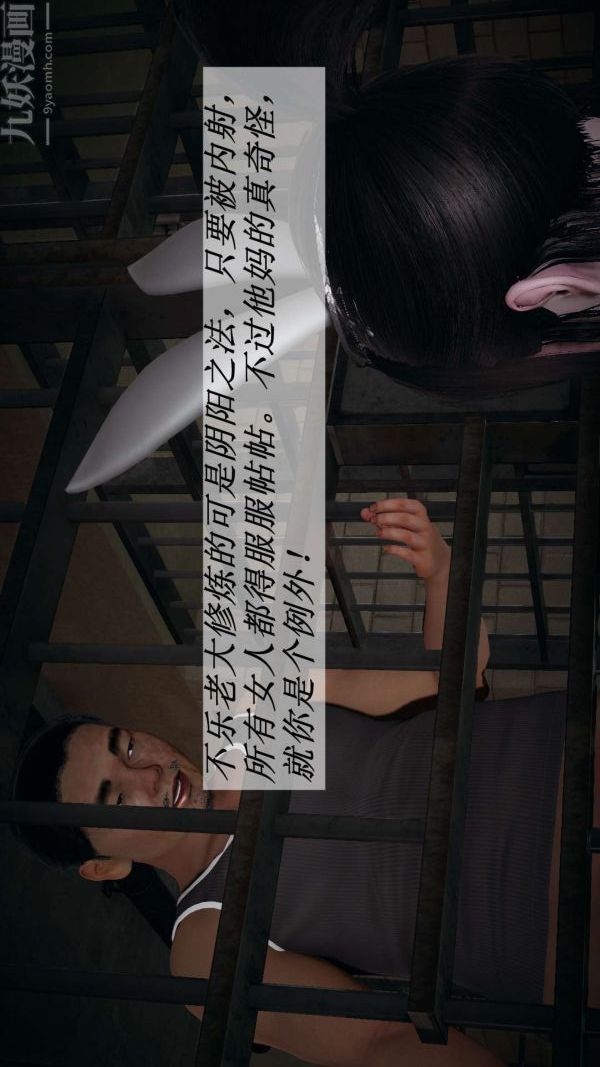 九妖漫画
9yaomh.com
不乐老大修炼的可是阴阳之法，只要被内射，
所有女人都得服服帖帖。不过他妈的真奇怪，
就你是个例外！